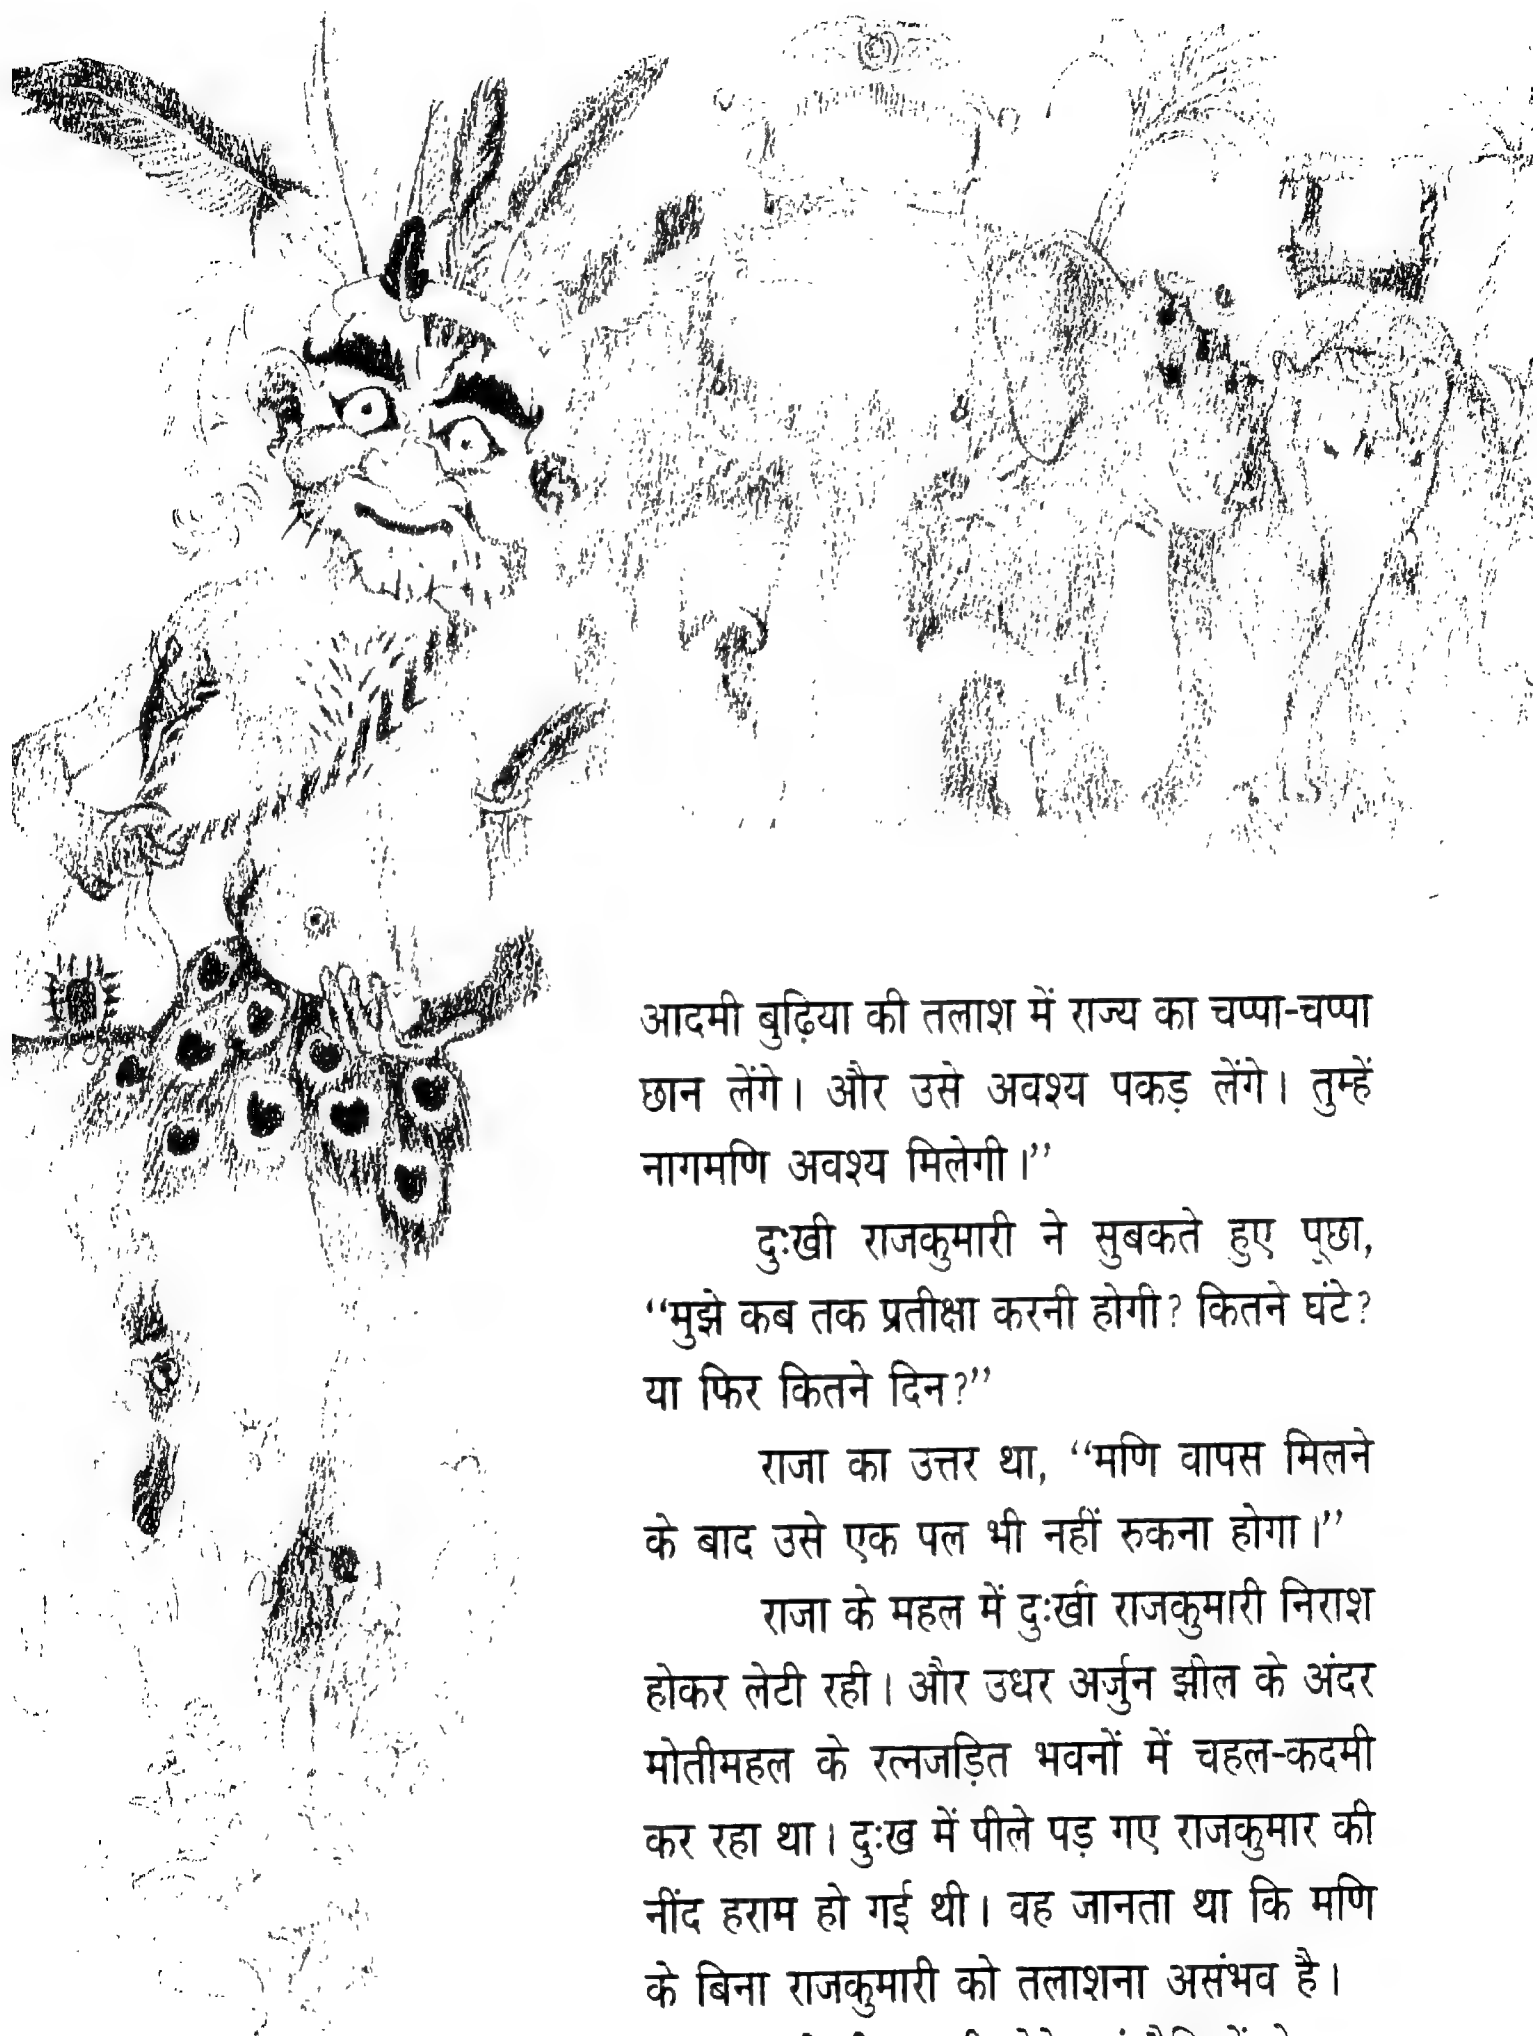 आदमी बुढ़िया की तलाश में राज्य का चप्पा-चप्पा
छान लेंगे। और उसे अवश्य पकड़ लेंगे। तुम्हें
नागमणि अवश्य मिलेगी।”
दुःखी राजकुमारी ने सुबकते हुए पूछा,
“मुझे कब तक प्रतीक्षा करनी होगी? कितने घंटे?
या फिर कितने दिन?”
राजा का उत्तर था, “मणि वापस मिलने
के बाद उसे एक पल भी नहीं रुकना होगा।”
राजा के महल में दुःखी राजकुमारी निराश
होकर लेटी रही। और उधर अर्जुन झील के अंदर
मोतीमहल के रत्नजड़ित भवनों में चहल-कदमी
कर रहा था। दुःख में पीले पड़ गए राजकुमार की
नींद हराम हो गई थी। वह जानता था कि मणि
के बिना राजकुमारी को तलाशना असंभव है।